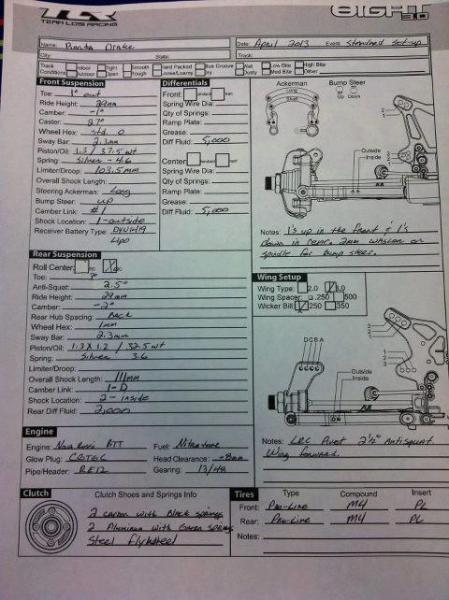 TLR
TEAM LOSI RACING
8IGHT 3.0
Name: Drake Date: April 2013 Event: Standard Set-up
City: State: Track:
Track Conditions Indoor Outdoor Tight Open Smooth Rough Hard Packed Loose/Loamy Blue Groove Dry Wet Dusty Low Bite Med Bite High Bite Other:
Front Suspension
Toe: 1° out
Ride Height: 29mm
Camber: -1°
Caster: 27°
Wheel Hex: std. 0
Sway Bar: 2.3mm
Piston/Oil: 1.3 / 37.5 wt
Spring: Silver - 4.6
Limiter/Droop: 103.5mm
Overall Shock Length:
Steering Ackerman: Long
Bump Steer: up
Camber Link: #1
Shock Location: 1-outside
Receiver Battery Type:
Lipo
Differentials
Front
Spring Wire Dia:
Qty of Springs:
Ramp Plate:
Grease:
Diff Fluid: 5,000
Center
Spring Wire Dia:
Qty of Springs:
Ramp Plate:
Grease:
Diff Fluid: 5,000
Ackerman Bump Steer
Long
Short
Up
Down
Outside
Inside
Notes: 1's up in the front & 1's
down in rear. 2mm washer on
spindle for bump steer.
Rear Suspension
Roll Center:
Toe: 3°
Anti-Squat: 2.5°
Ride Height: 29mm
Camber: -2°
Rear Hub Spacing: Back
Wheel Hex: 1mm
Sway Bar: 2.3mm
Piston/Oil: 1.3 X 1.2 / 32.5 wt
Spring: Silver 3.6
Limiter/Droop:
Overall Shock Length: 111mm
Camber Link: 1-D
Shock Location: 2-inside
Rear Diff Fluid: 2,000
Wing Setup
Wing Type: 2.0 3.0
Wing Spacer: .250 .500
Wicker Bill .250 .350
DCBA
Outside
Inside
Notes: LRC Pivot 2 1/2° Antisquat
Wing forward.
Engine
Engine: Nova Rossi BTT Fuel: Nitrotane
Glow Plug: C6TGC Head Clearance: .8mm
Pipe/Header: RE12 Gearing: 13/48
Clutch
Clutch Shoes and Springs Info
2 carbon with Black springs
2 Aluminum with Green springs
Steel flywheel
Tires Type Compound Insert
Front: Pro-Line M4 PL
Rear: Pro-Line M4 PL
Notes: